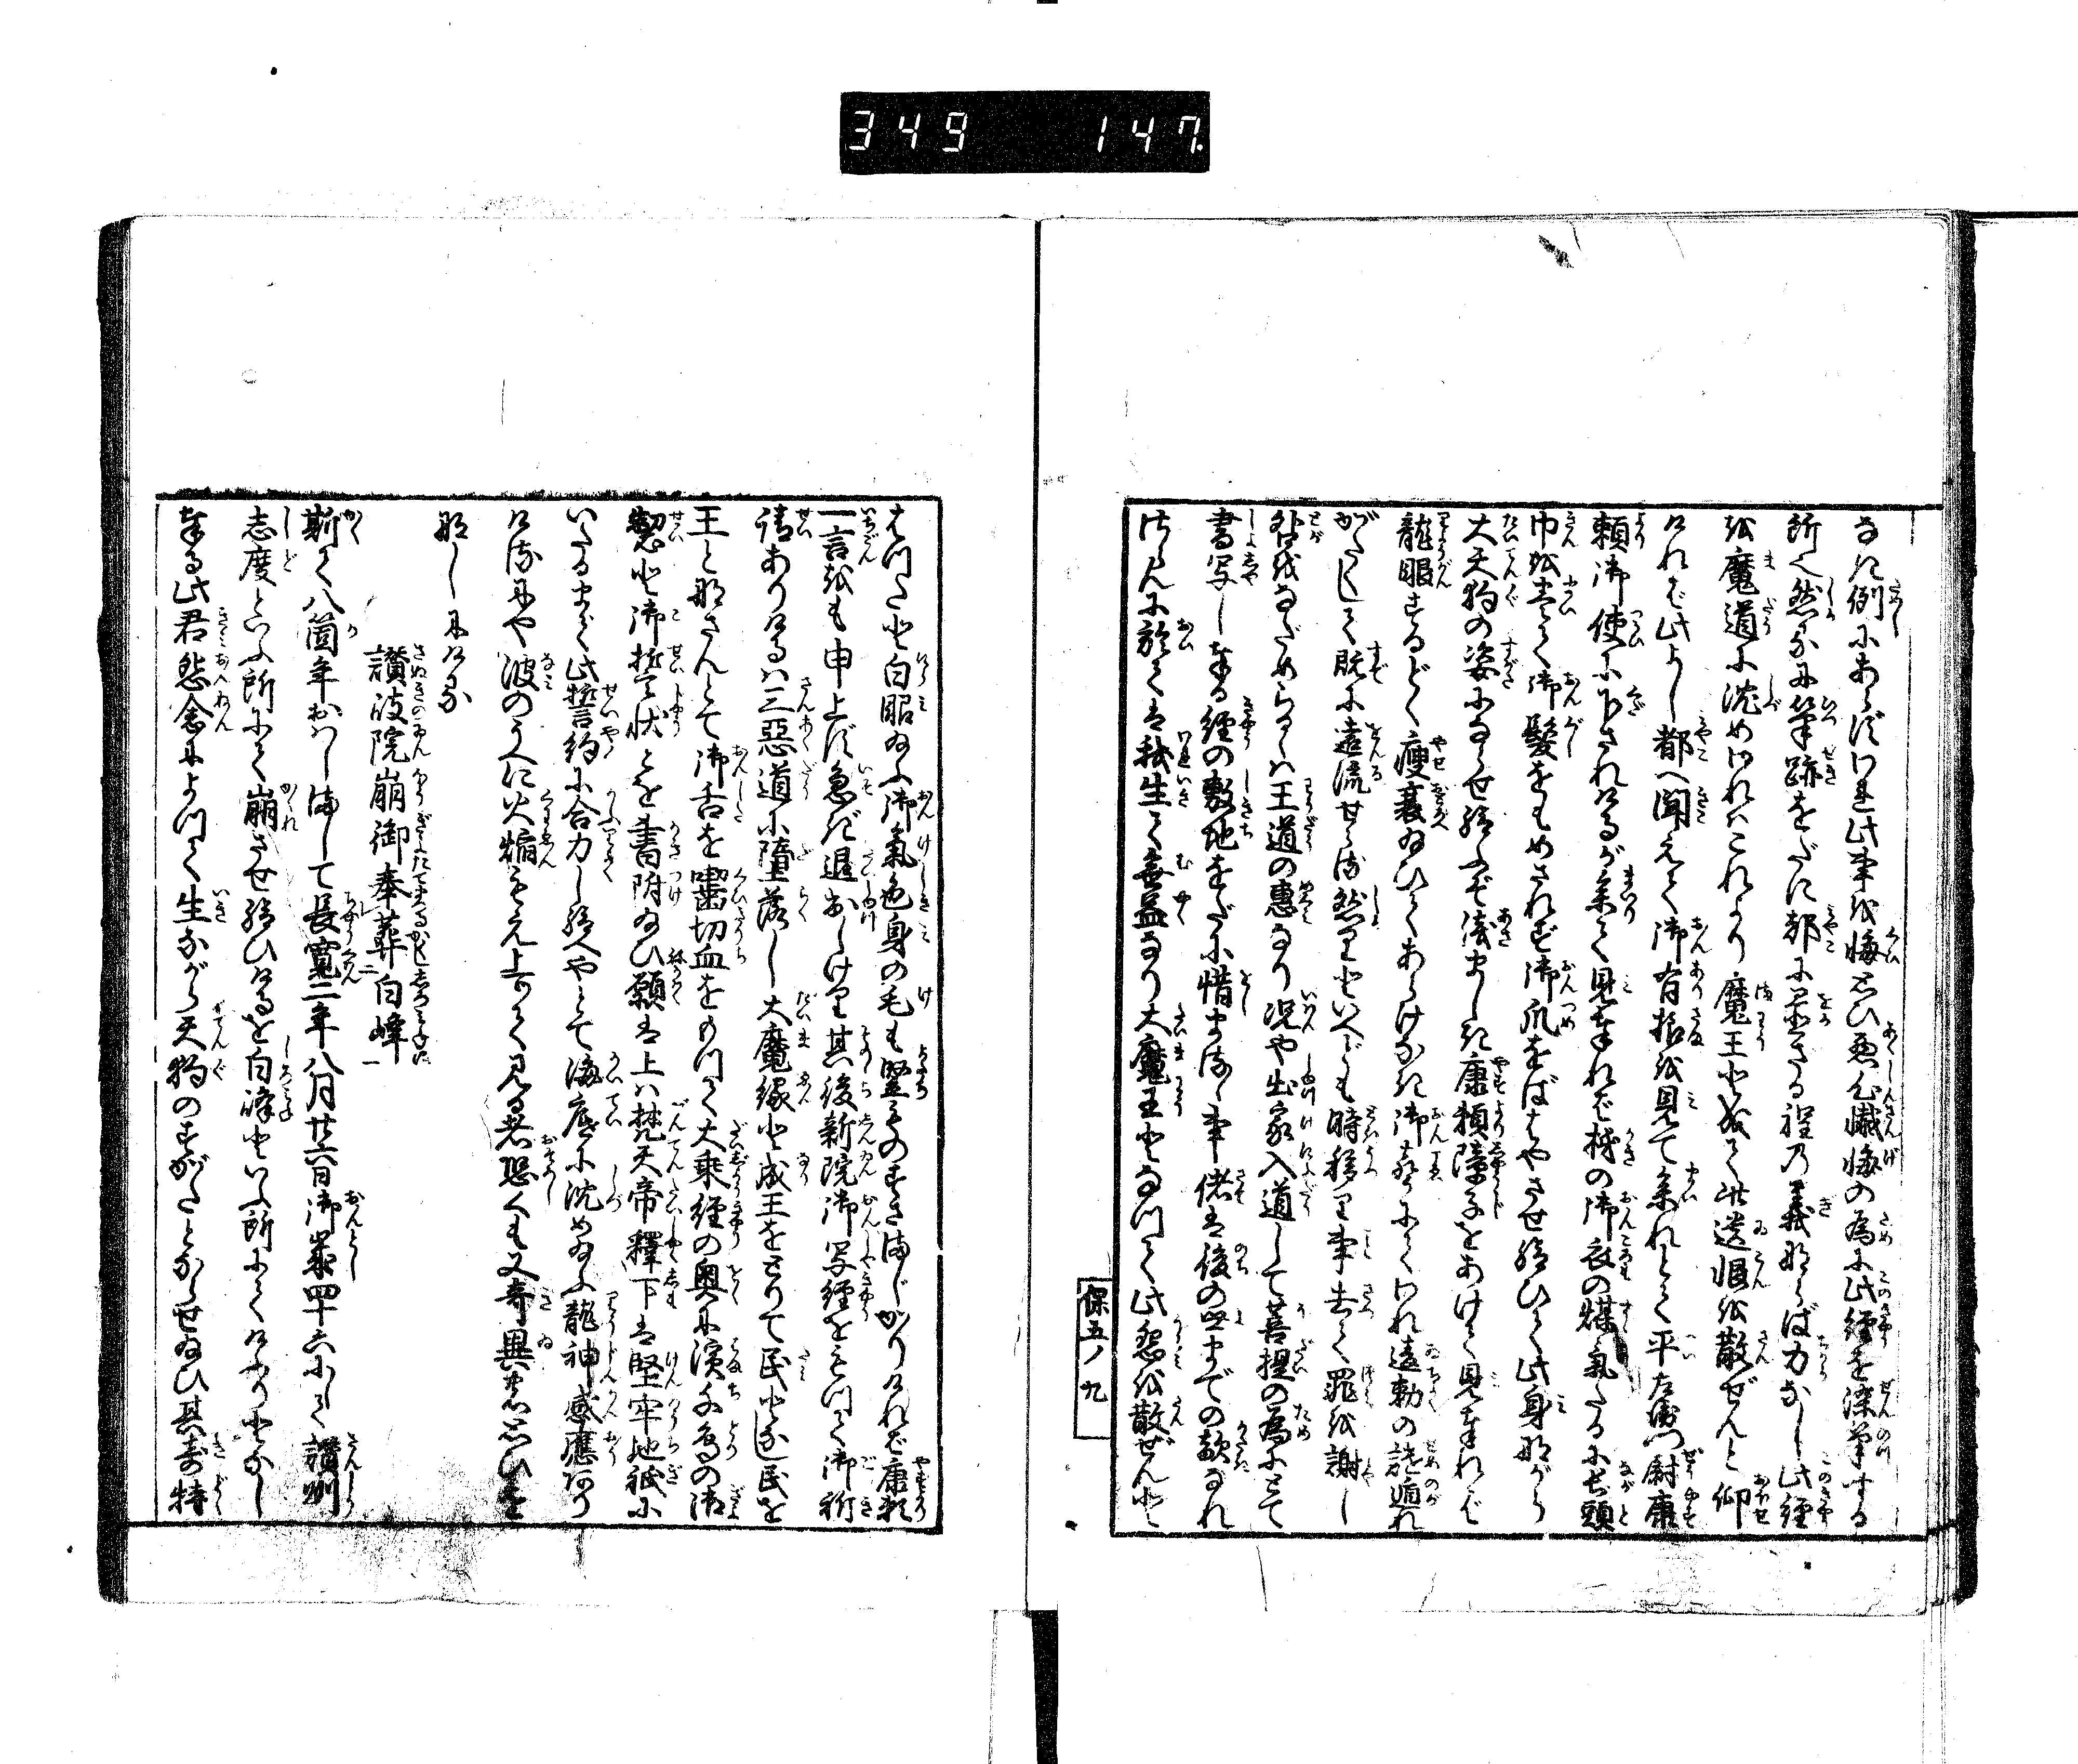 349 147
なき例にあらずわれ此事を悔思ひ悪心懺悔の為に此経を漸筆する
所也然るに筆跡をだに都に置ざる程の義ならば力なし此経
を魔道に沈め我はこれより魔王と成て此遺恨を散ぜんと仰
ければ此よし都へ聞えて御有様を見て参れとて平左衛門尉康
頼御使に下されけるが参て見奉れば柿の御衣の煤気たるに長頭
巾を巻て御髪をもめされず御爪をばはやさせ給ひて此身ながら
大天狗の姿にならせ給ふぞ浅ましき康頼障子をあけて見奉れば
龍眼するどく痩衰給ひてあらけなき御声にてわれ違勅の逃遁れ
がたくして既に遠流せらる然りといへども時移り事去て罪を謝し
咎をなだめらるゝは王道の恵なり況や出家入道して菩提の為にとて
書写し奉る経の敷地をだに惜まるゝ事偖は後の世までの敵なれ
は於ては我生て無益なり大魔王となつて此怨を散ぜんと
保五ノ九
はつたと白眼給ふ御気色身の毛も竪ものすさまじかりければ康頼
一言をも申上ず急ぎ退出しけり其後新院御写経をもつて御祈
請ありけるは三悪道に墮落し大魔縁と成王をとりて民となし民を
王と那さんとて御舌を噛切血をもつて大乗経の奥に濱千鳥の御
製と御誓状とを書附給ひ願は上は梵天帝釋下は堅牢地祇に
いたるまで此誓約に合力し給へやとて海底に沈め給ふ龍神感應有
けるにや波のうへに火焔もえ上りて見る者恐くも又奇異の思ひを
なしにけり
讃岐院崩御奉葬白峰
斯て八箇年おはしまして長寛二年八月廿六日御歳四十六にして讃州
志度といふ所にて崩させ給ひけるを白峰といふ所にてけふりとなし
奉る此君怨念によつて生ながら天狗のすがたとならせ給ひ其奇特